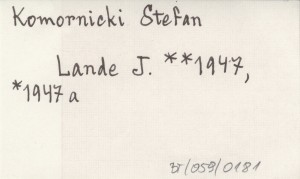 Komornicki Stefan
Lande J. **1947,
*1947a
BJ/059/0181